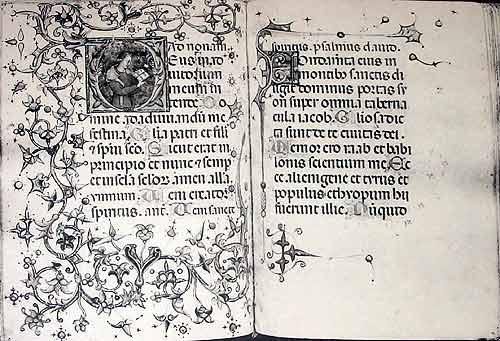 Ad nonam.
Eus in ad
iutorium
meum in
tende. Do
mine ad adiuuandũ me
festina. Glia patri et fili
et spui sco. Sicut erat in
principio et nunc et semp
et in secla selor. amen. alla
ymnum. Veni creator
spiritus. ant. Veni sancte
spiritus. psalmus dauid.
Fundamta eius in
montibus sanctis di
ligit dominus portas sy
on super omnia taberna
cula iacob. Gliosa dic
ta sunt de te ciuitas dei.
Memor ero raab et babi
lonis scientium me. Ec
ce alienigene et tyrus et
populus ethyopum hii
fuerunt illic. Nũquid